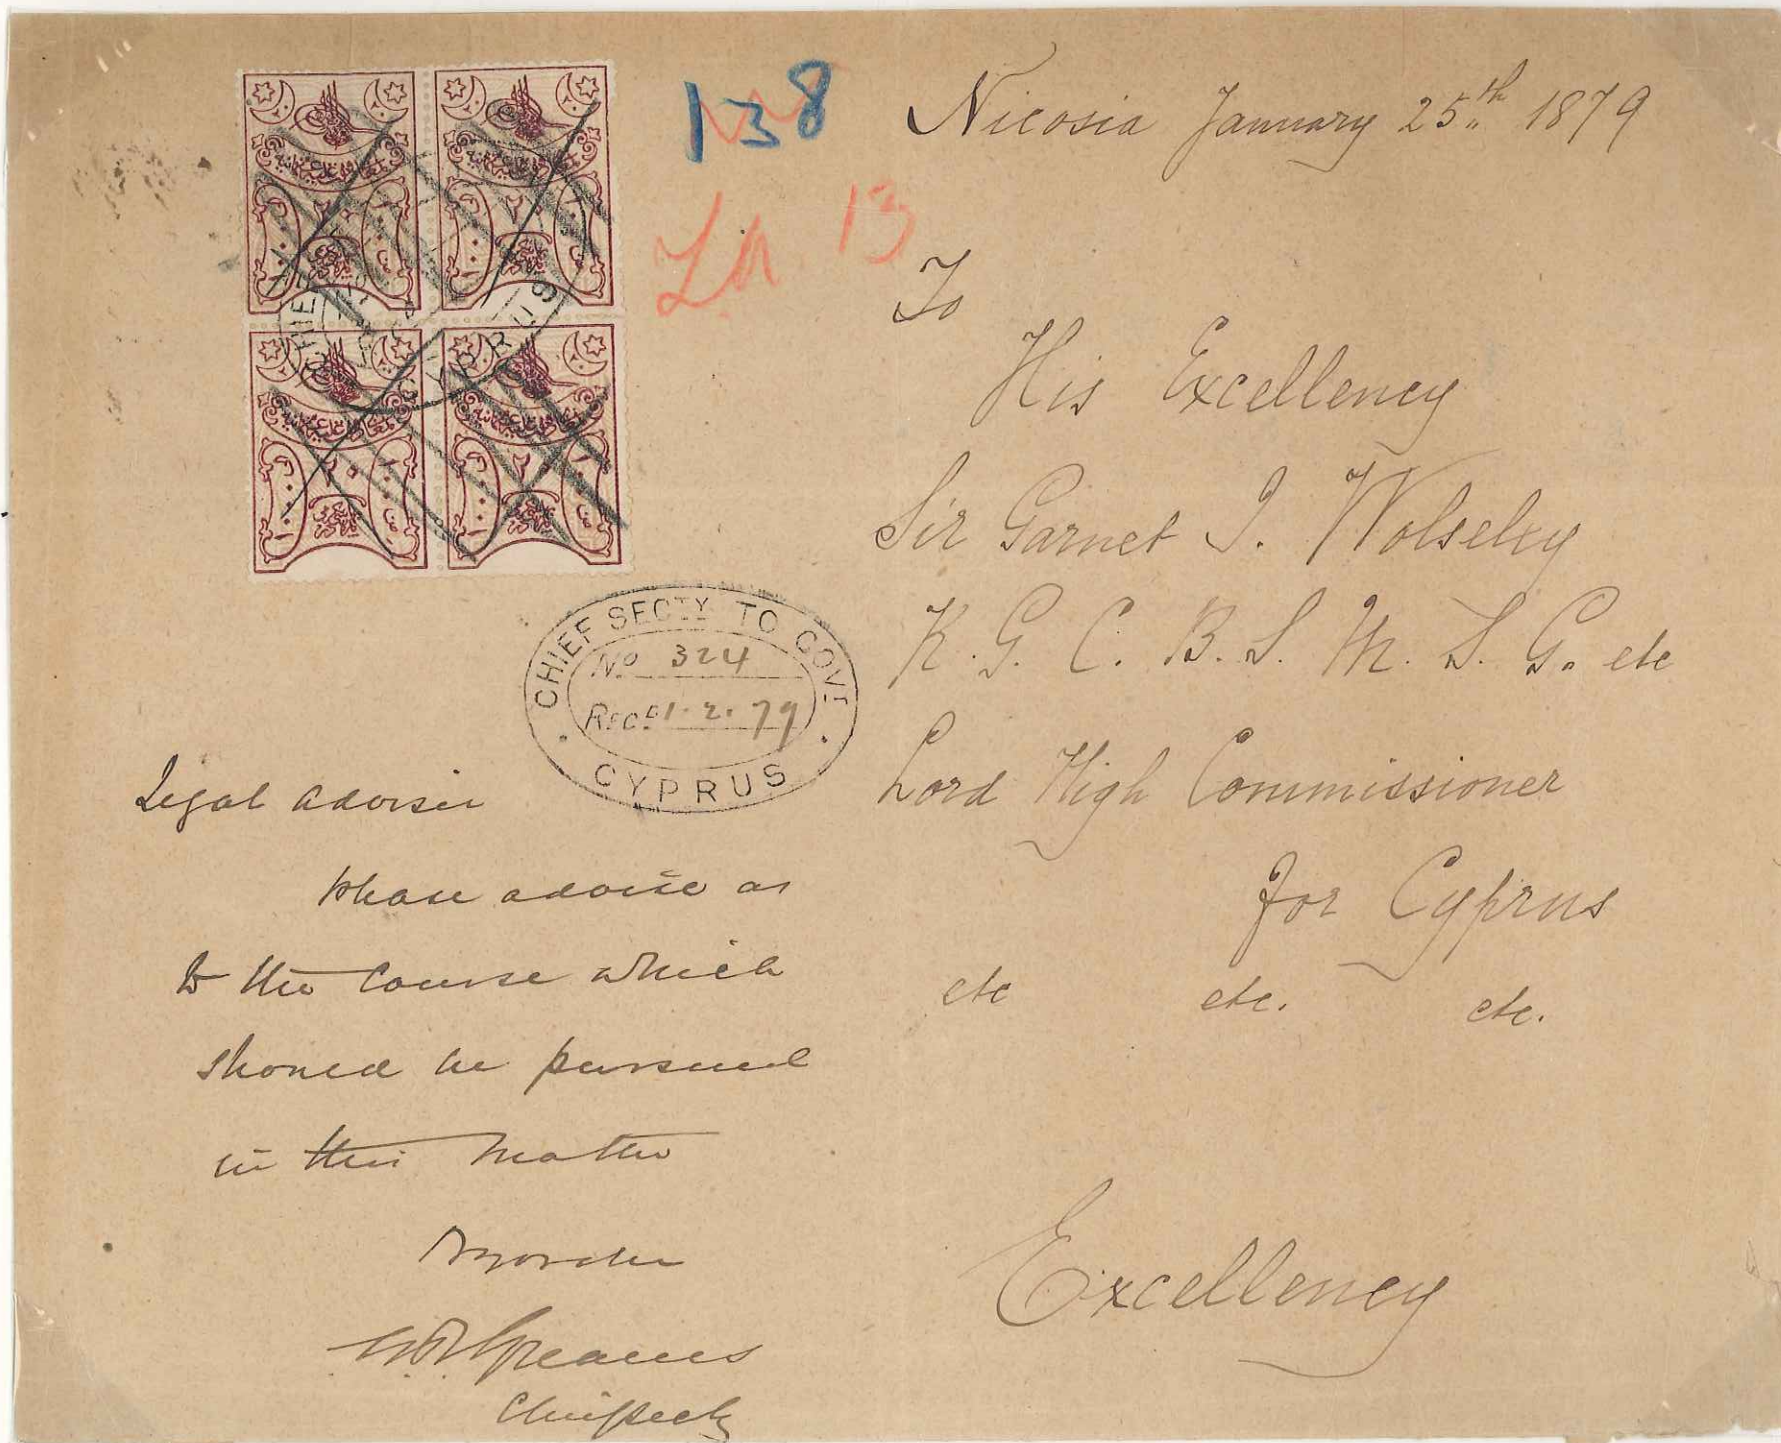 138
Nicosia January 25th 1879
La 13
To
His Excellency
Sir Garnet J. Wolseley
K. G. C. B. S. M. S. G. etc
Lord High Commissioner
for Cyprus
etc etc. etc.
Excellency
CHIEF SECTY TO GOVT
No 324
Recd 1.2.79
CYPRUS
CYPRUS
Legal adviser
please advise as
to the course which
should be pursued
in this matter
By order
Chief Secty